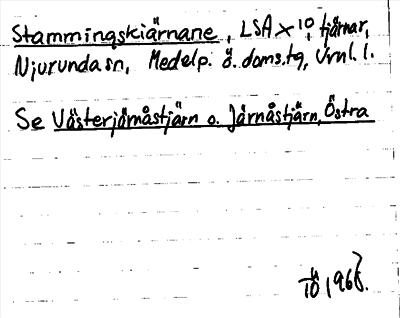 Stammingskiärnane, LSA X 10, tjärnar,
Njurunda sn, Medelp. ö. doms.tg, Vnl. l.
Se Västerjärnåstjärn o. Järnåstjärn, Östra
10 1968.